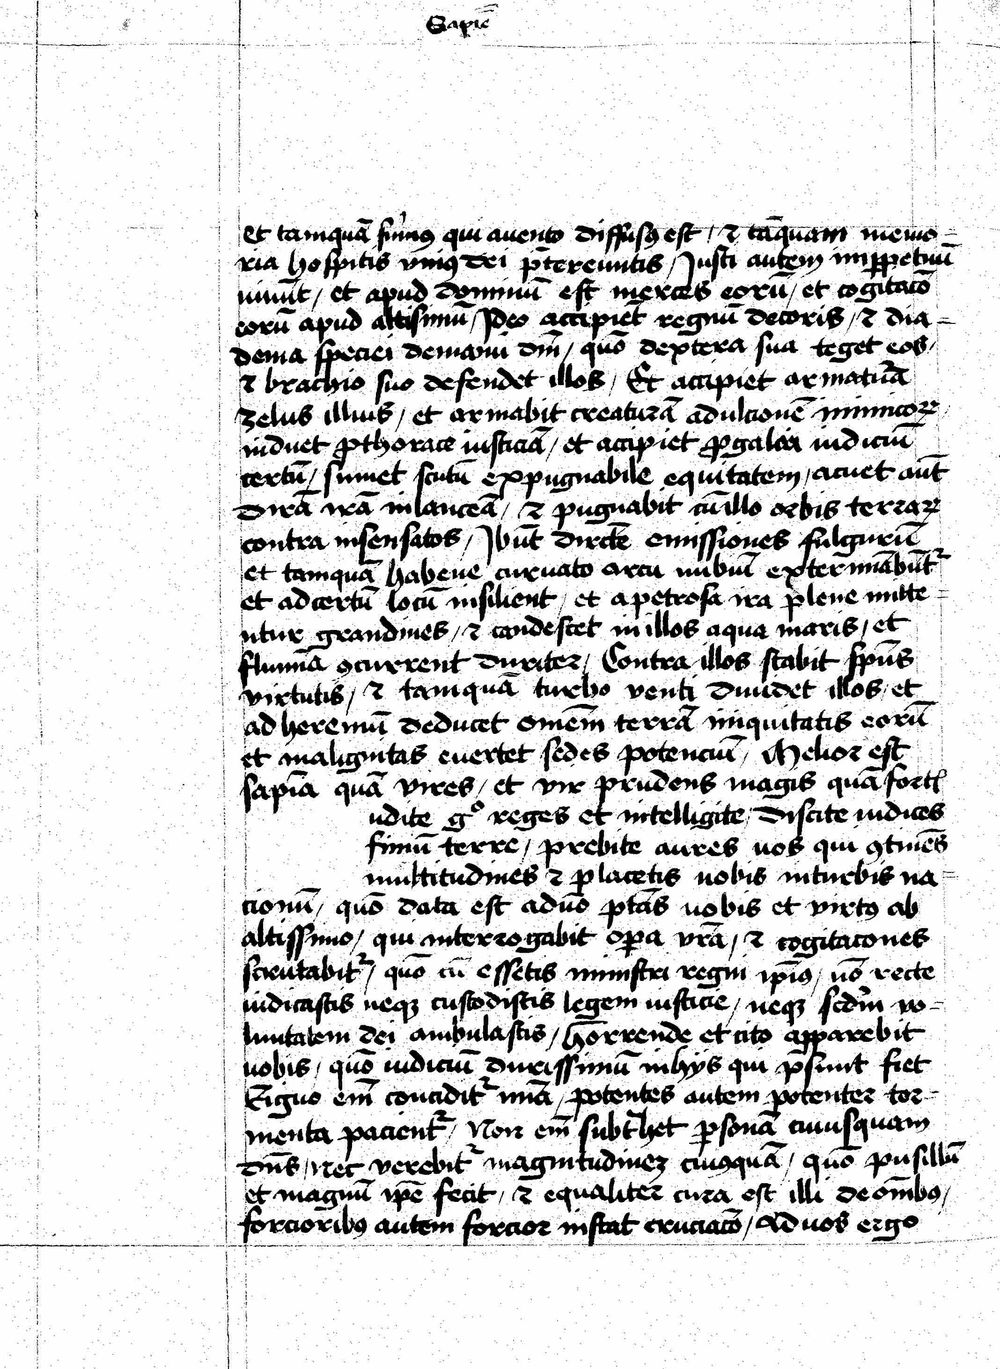 Sapiē
Et tamquā fum9 qui auento diffus9 est / ⁊ tāquam memo=
ria hospitis uni9 dei p̄tereuntis / Justi autem imꝑpetuū
uiuūt / et apud dominū est merces eorū / et cogitacō
eorū apud altisimū / Ideo accipiēt regnū decoris / ⁊ dia=
dema speciei demanu dnī / quō dextera sua teget eos /
⁊ brachio suo defendet illos / Et accipiet armatur̄ā
zelus illius / et armabit creaturā adulcionē inimicoꝝ /
induet ꝓthorace iusticiā / et accipiet ꝓgalea iudiciū
certū / sumet scutū expugnabile equitatem / acuet aūt
dirā irā inlanceā / ⁊ pugnabit cū illo orbis terraꝝ
contra insensatos / Ibūt dircte emissiones fulgurū
et tamquā habene curuato arcu nubiū extermīabūt᷑
et adcertū locū insilient / et apetrosa ira plene mitte=
ntur grandines / ⁊ candescet inillos aqua maris / et
flumīa ꝯcurrent duriter / Contra illos stabit spūs
virtutis / ⁊ tamquā turbo venti diuidet illos / et
ad heremū deducet omēm terrā iniquitatis eorū
et malignitas euertet sedes potenciū / Melior est
sapīa quā vires / et vir prudens magis quā fortꝭ
udite gº reges et intelligite / Discite iudices
finiū terre / prebite aures uos qui ꝯtinēs
multitudines ⁊ placetis uobis inturbis na=
cionū / quō data est aduō ptās uobis et virt9 ab
altissimo / qui interrogabit oꝑa vrā / ⁊ cogitacones
scrutabit᷑ / quō cū essetis ministri regni ipī9 / nō recte
iudicastis neqꝫ custodistis legem iusticie / neqꝫ scdm̄ vo=
luntatem dei ambulastis / horrende et cito apparebit
uobis / quō iudiciū durissimū inhijs qui p̄sunt fiet
Exiguo em̄ concidit᷑ mīa / potentes autem potenter tor=
menta pacient᷑ / Non em̄ subt̄het ꝑsonā cuiusquam
dn̄s / nec verebit᷑ magnitudinez cui9quā / quō pusillū
et magnū ipē fecit / ⁊ equaliter cura est illi de om̄ib9 /
forciorib9 autem forcior instat cruciacō / Ad uos ergo